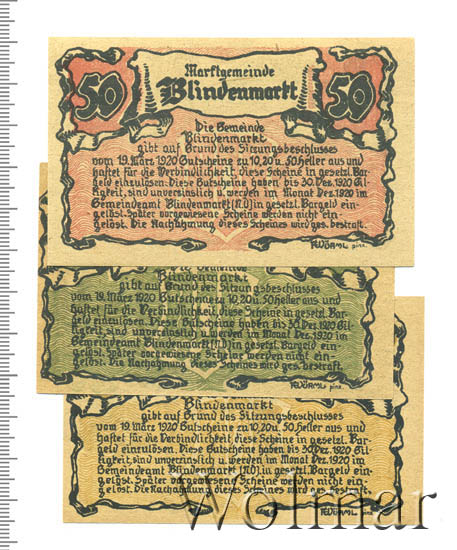 Marktgemeinde
50 Blindenmarkt 50
Die Gemeinde
Blindenmarkt
gibt auf Grund des Sitzungsbeschlusses
vom 19. März 1920 Gutscheine zu 10, 20 u. 50 Heller aus und
haftet für die Verbindlichkeit, diese Scheine in gesetzl. Bar-
geld einzulösen. Diese Gutscheine haben bis 30. Dez. 1920 Gil-
tigkeit, sind unverzinslich u. werden im Monat Dez. 1920 im
Gemeindeamt Blindenmarkt (N.Ö.) in gesetzl. Bargeld ein-
gelöst. Später vorgewiesene Scheine werden nicht ein-
gelöst. Die Nachahmung dieses Scheines wird ges. bestraft.
R.WÖRML pinx.
Die Gemeinde
Blindenmarkt
gibt auf Grund des Sitzungsbeschlusses
vom 19. März 1920 Gutscheine zu 10, 20 u. 50 Heller aus und
haftet für die Verbindlichkeit, diese Scheine in gesetzl. Bar-
geld einzulösen. Diese Gutscheine haben bis 30. Dez. 1920 Gil-
tigkeit, sind unverzinslich u. werden im Monat Dez. 1920 im
Gemeindeamt Blindenmarkt (N.Ö.) in gesetzl. Bargeld ein-
gelöst. Später vorgewiesene Scheine werden nicht ein-
gelöst. Die Nachahmung dieses Scheines wird ges. bestraft.
R.WÖRML pinx.
Blindenmarkt
gibt auf Grund des Sitzungsbeschlusses
vom 19. März 1920 Gutscheine zu 10, 20 u. 50 Heller aus und
haftet für die Verbindlichkeit diese Scheine in gesetzl. Bar-
geld einzulösen. Diese Gutscheine haben bis 30. Dez. 1920 Gil-
tigkeit, sind unverzinslich u. werden im Monat Dez. 1920 im
Gemeindeamt Blindenmarkt (N.Ö.) in gesetzl. Bargeld ein-
gelöst. Später vorgewiesene Scheine werden nicht ein-
gelöst. Die Nachahmung dieses Scheines wird ges. bestraft.
R.WÖRML pinx.
Wolmar